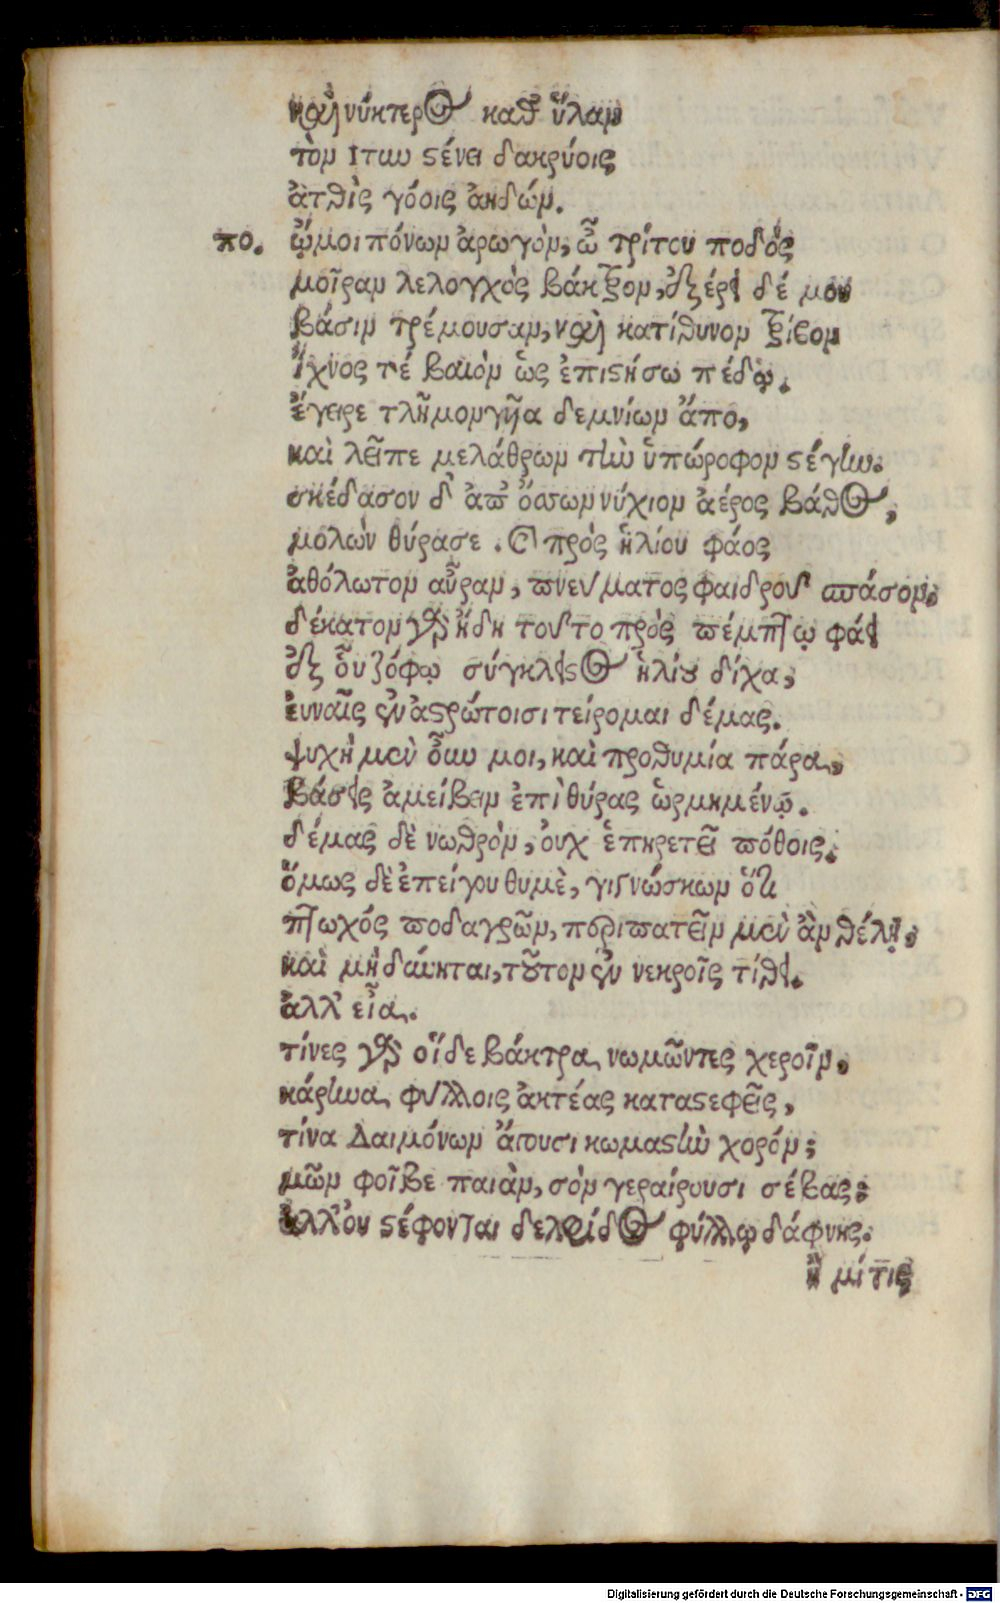 καὶ νύκτερος καθ' ὕλαν
τὸν Ἴτυν στένει δακρύοις
ἀτθὶς γόοις ἀηδών.
πο. ὤμοι πόνων ἀρωγὸν, ὦ τρίτου ποδὸς
μοῖραν λελογχὸς βάκτρον, ἐξέρειδέ μου
βάσιν τρέμουσαν, καὶ κατίθυνον τρίβον
ἴχνος τέ βαιὸν ὡς ἐπιστήσω πέδῳ.
ἔγειρε τλῆμον γυῖα δεμνίων ἄπο,
καὶ λεῖπε μελάθρων τὴν ὑπώροφον στέγην.
σκέδασον δ' ἀπ' ὄσσων νύχιον ἀέρος βάθος,
μολὼν θύρασε. καὶ πρὸς ἡλίου φάος
ἀθόλωτον αὖραν, πνεύματος φαιδροῦ σπάσον.
δέκατον γὰρ ἤδη τοῦτο πρὸς πέμπτῳ φάει
ἐξ οὗ ζόφῳ σύγκλειστος ἡλίου δίχα,
εὐναῖς ἐν ἀστρώτοισι τείρομαι δέμας.
ψυχὴ μὲν οὖν μοι, καὶ προθυμία πάρα,
βάσεις ἀμείβειν ἐπὶ θύρας ὡρμημένῳ.
δέμας δὲ νωθρὸν, οὐχ ὑπηρετεῖ πόθοις.
ὅμως δὲ ἐπείγου θυμὲ, γιγνώσκων ὅτι
πτωχός ποδαγρῶν, περιπατεῖν μὲν ἂν θέλῃ,
καὶ μὴ δύνηται, τοῦτον ἐν νεκροῖς τίθει.
ἀλλ' εἶα.
τίνες γὰρ οἵδε βάκτρα νωμῶντες χεροῖν,
κάρηνα φύλλοις ἀκτέας καταστεφεῖς,
τίνα δαιμόνων ἄγουσι κωμαστὴν χορόν;
μῶν φοῖβε παιὰν, σὸν γεραίρουσι σέβας;
ἀλλ' οὐ στέφονται δελφίδος φύλλῳ δάφνης.
ἢ μή τις
Digitalisierung gefördert durch die Deutsche Forschungsgemeinschaft - DFG